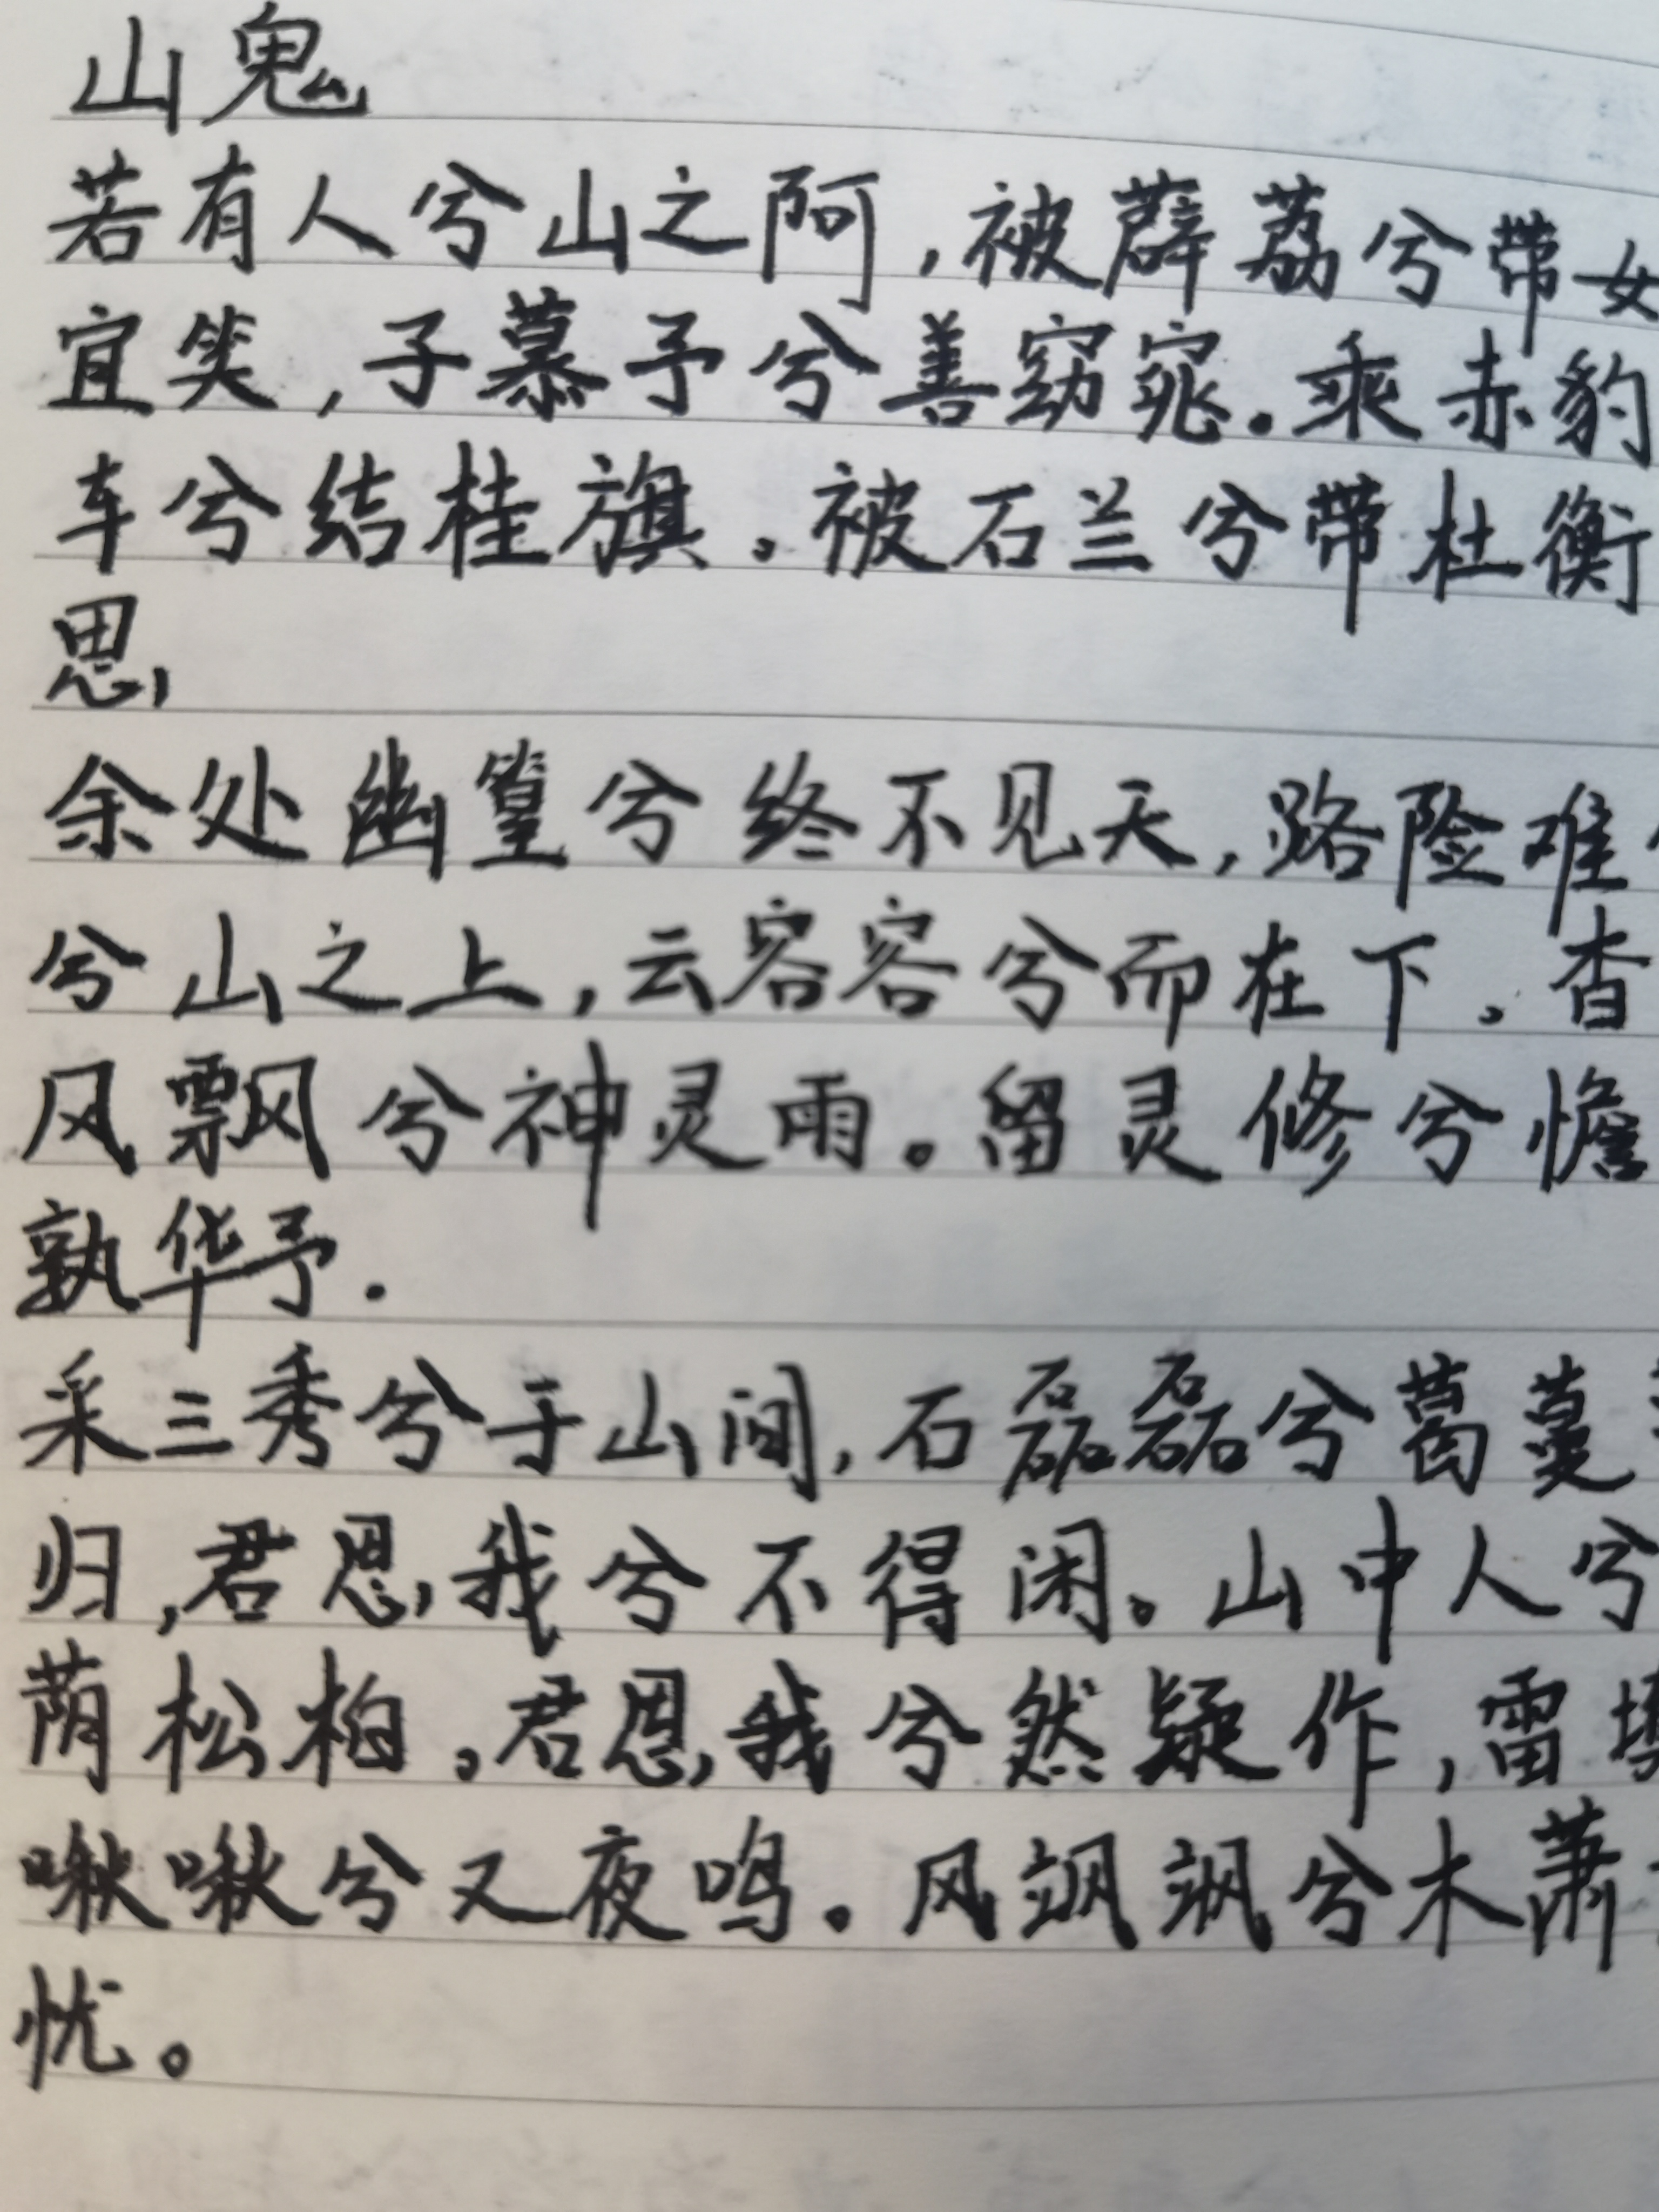 山鬼
若有人兮山之阿,被薜荔兮带女
宜笑,子慕予兮善窈窕.乘赤豹
车兮结桂旗。被石兰兮带杜衡
思
余处幽篁兮终不见天,路险难
兮山之上,云容容兮而在下。杳
风飘兮神灵雨。留灵修兮憺
孰华予.
采三秀兮于山间,石磊磊兮葛蔓
归,君思我兮不得闲。山中人兮
荫松柏。君思我兮然疑作,雷填
啾啾兮又夜鸣。风飒飒兮木萧
忧。